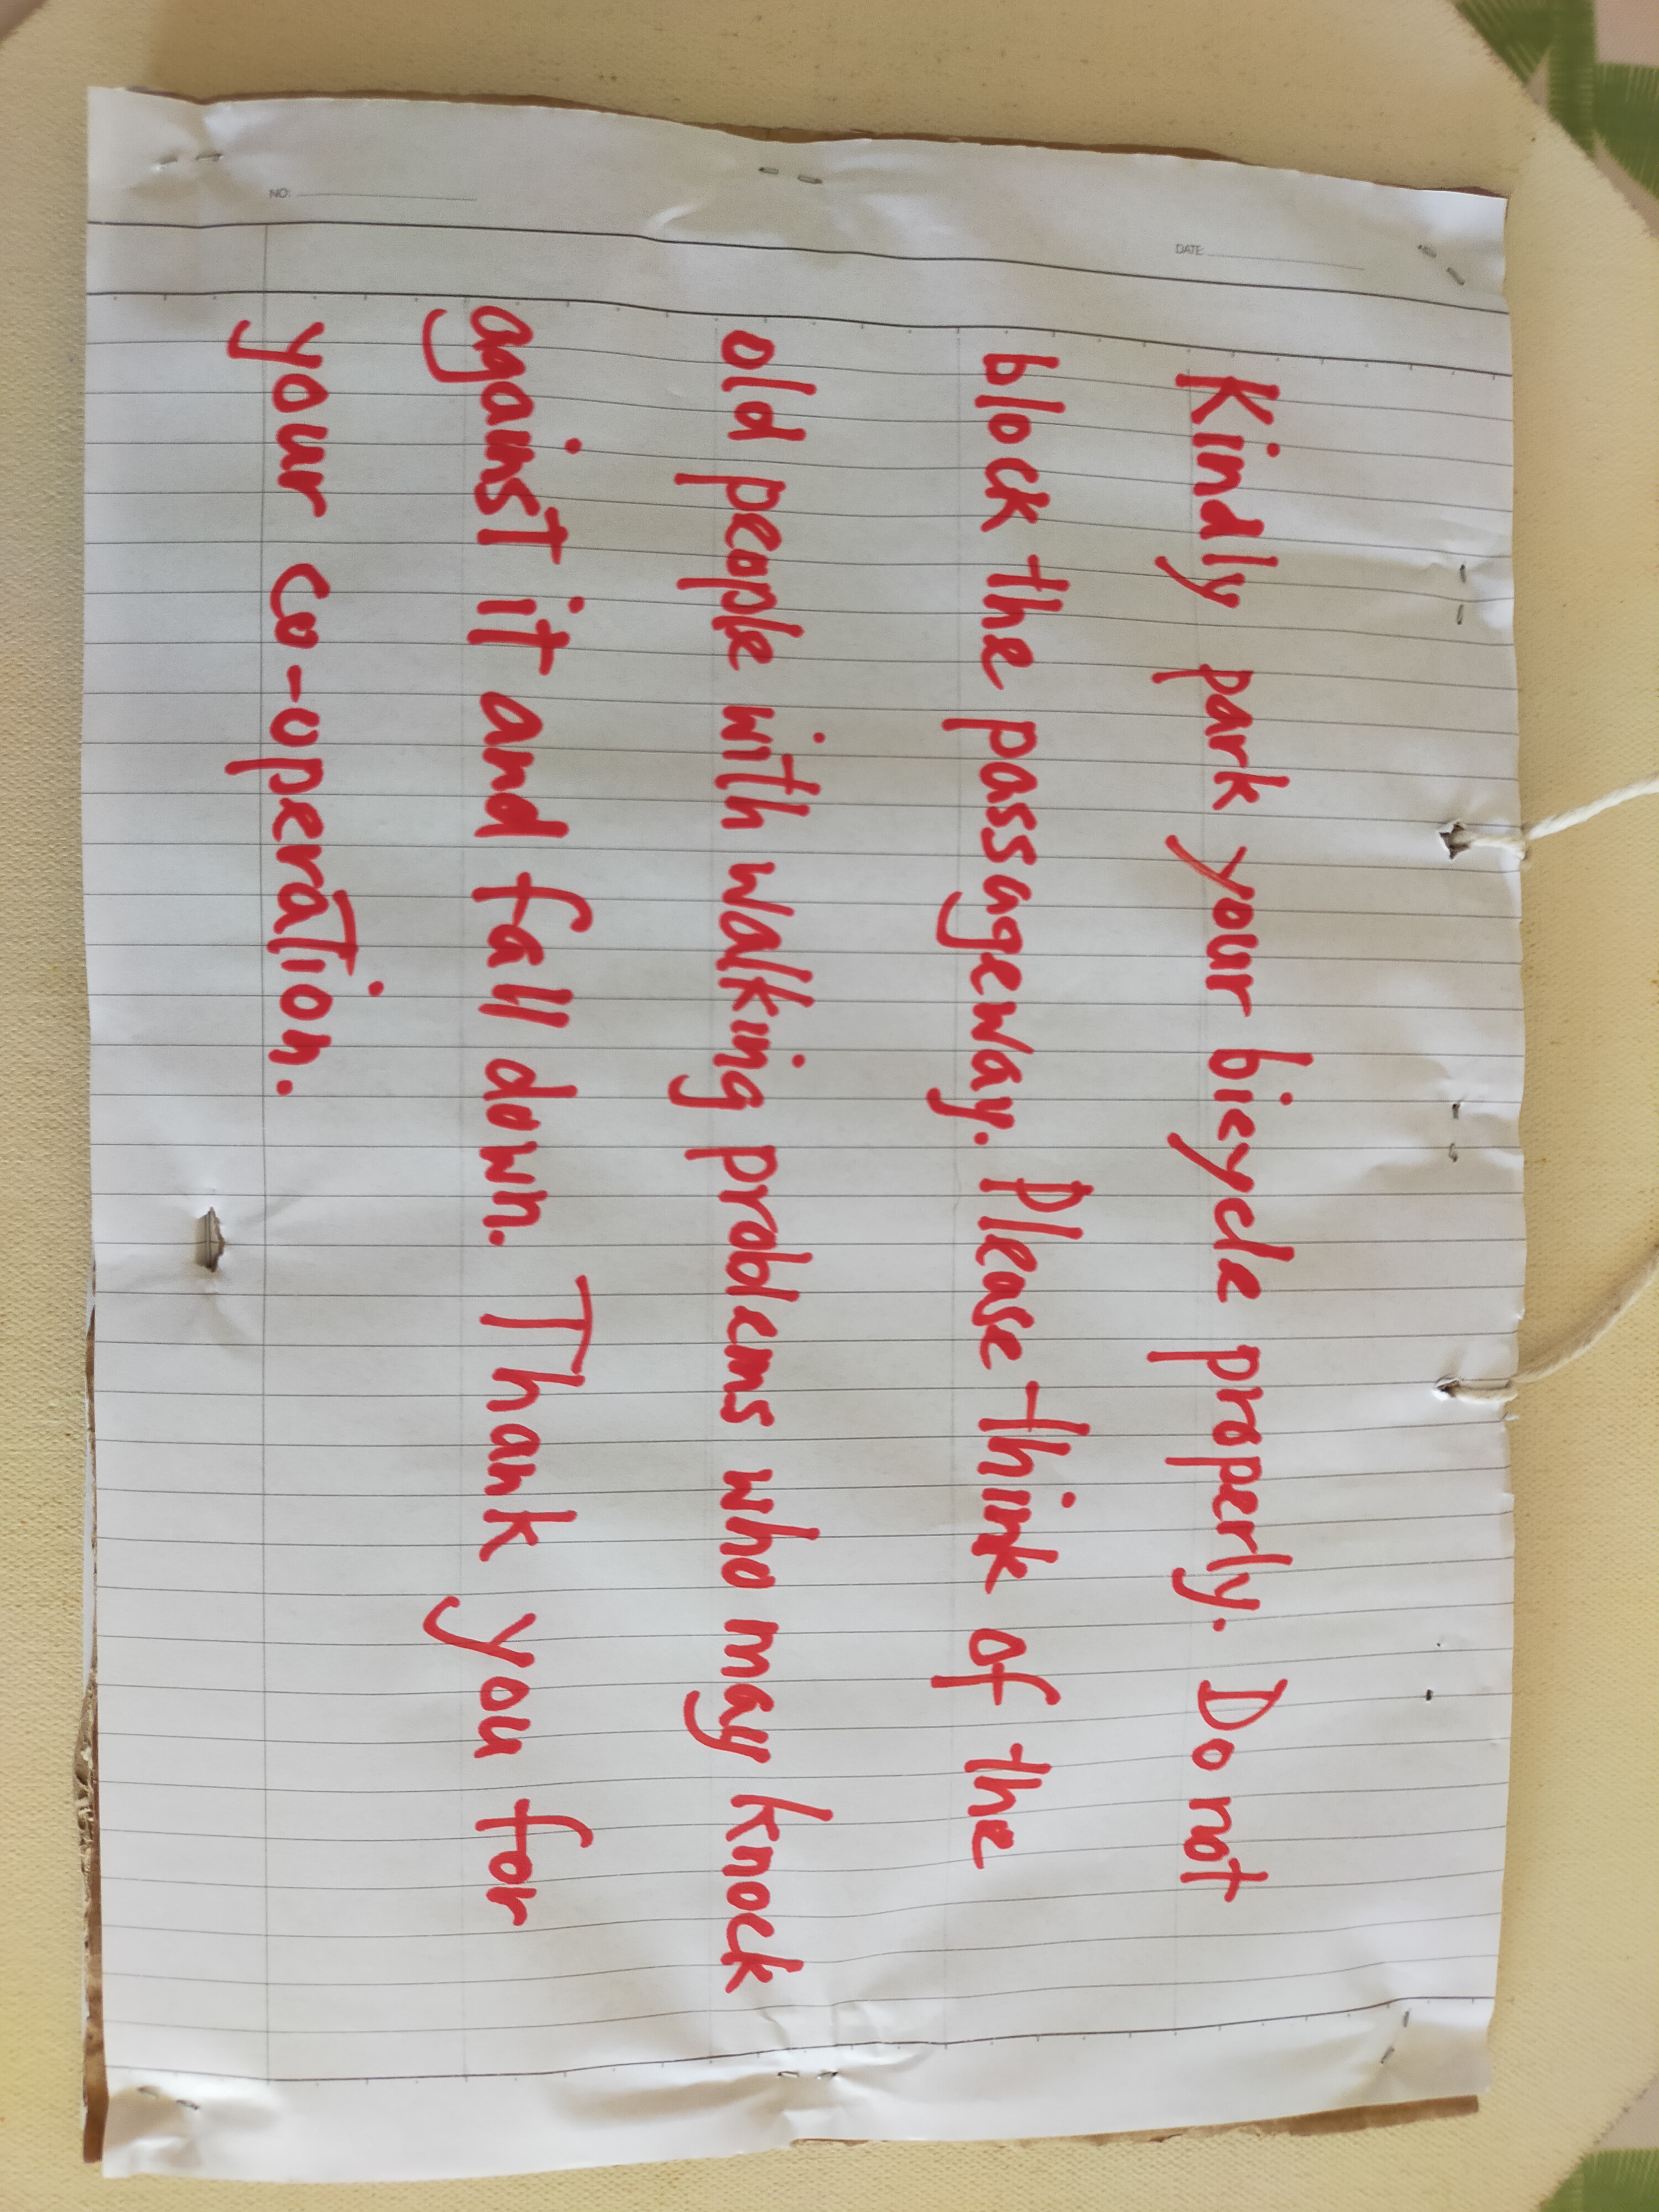 Kindly park your bicycle properly. Do not
block the passageway. Please think of the
old people with walking problems who may knock
against it and fall down. Thank you for
your co-operation.
NO:
DATE: